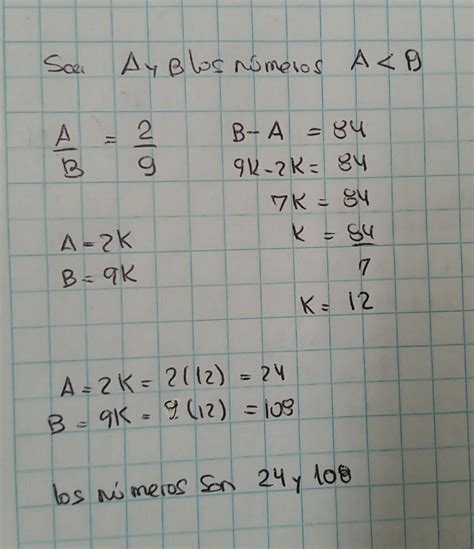 Sea A y B los números A < B
A/B = 2/9
A = 2K
B = 9K
B - A = 84
9K - 2K = 84
7K = 84
K = 84/7
K = 12
A = 2K = 2(12) = 24
B = 9K = 9(12) = 108
los números son 24 y 108